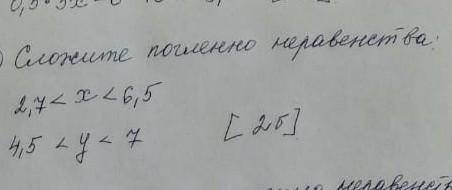 ) Сложите почленно неравенства:
2,7 < x < 6,5
4,5 < y < 7 [2б]
неравенст